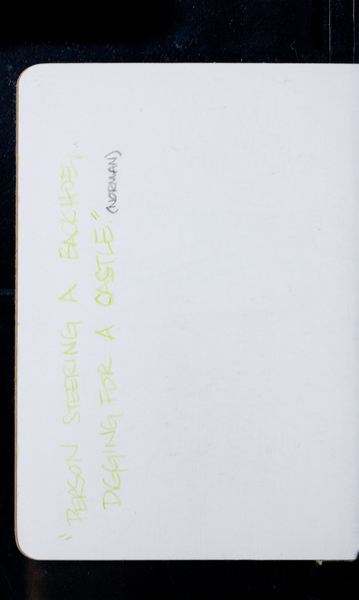 "PERSON STEERING A BACKHOE,
DIGGING FOR A CASTLE"
(NORMAN)